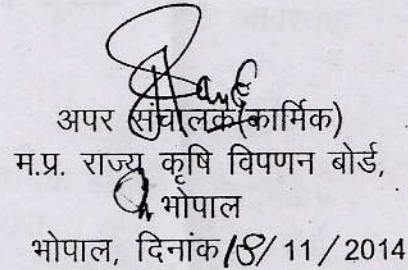 अपर संचालक(कार्मिक)
म.प्र. राज्य कृषि विपणन बोर्ड,
भोपाल
भोपाल, दिनांक 18/ 11 / 2014